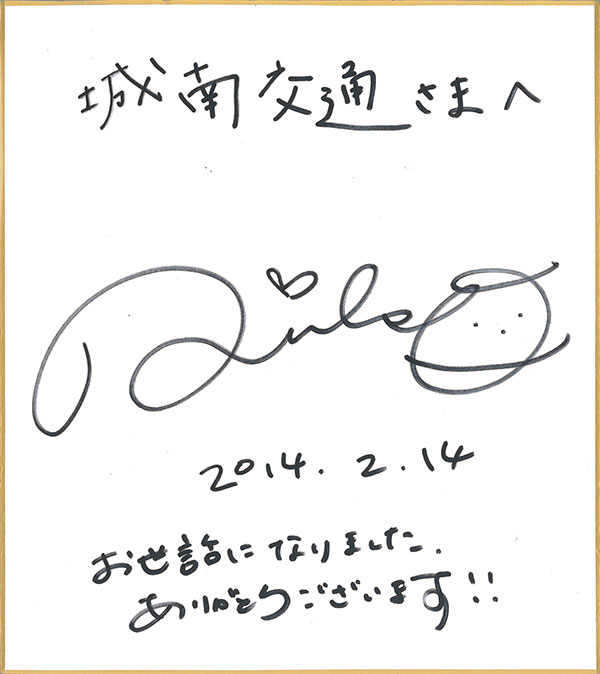 城南交通さまへ
2014.2.14
お世話になりました.
ありがとうございます!!